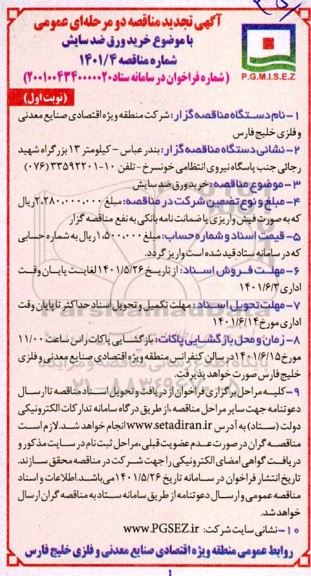 آگهی تجدید مناقصه دو مرحله‌ای عمومی
با موضوع خرید ورق ضد سایش
شماره مناقصه ۱۴۰۱/۴
(شماره فراخوان در سامانه ستاد ۲۰۰۱۰۰۴۳۴۰۰۰۰۰۲۰)
P.G.M.I.S.E.Z
(نوبت اول)
۱- نام دستگاه مناقصه گزار: شرکت منطقه ویژه اقتصادی صنایع معدنی
و فلزی خلیج فارس
۲- نشانی دستگاه مناقصه گزار: بندرعباس - کیلومتر ۱۳ بزرگراه شهید
رجائی جنب پاسگاه نیروی انتظامی خونسرخ - تلفن ۱۰-۳۳۵۹۲۲۰۱(۰۷۶)
۳- موضوع مناقصه: خرید ورق ضد سایش
۴- مبلغ و نوع تضمین شرکت در مناقصه: مبلغ ۲.۲۸۰.۰۰۰.۰۰۰ ریال
که به صورت فیش واریزی یا ضمانت نامه بانکی به نفع مناقصه گزار
۵- قیمت اسناد و شماره حساب: مبلغ ۱.۵۰۰.۰۰۰ ریال به شماره حسابی
که در سامانه ستاد قید شده است واریز گردد.
۶- مهلت فروش اسناد: از تاریخ ۱۴۰۱/۵/۲۶ لغایت پایان وقت
اداری ۱۴۰۱/۶/۳
۷- مهلت تحویل اسناد: مهلت تکمیل و تحویل اسناد حداکثر تا پایان وقت
اداری مورخ ۱۴۰۱/۶/۱۴
۸- زمان و محل بازگشایی پاکات: بازگشایی پاکات راس ساعت ۱۱/۰۰
مورخ ۱۴۰۱/۶/۱۵ در سالن کنفرانس منطقه ویژه اقتصادی صنایع معدنی و فلزی
خلیج فارس صورت خواهد پذیرفت.
۹- کلیه مراحل برگزاری فراخوان از دریافت و تحویل اسناد مناقصه تا ارسال
دعوتنامه جهت سایر مراحل مناقصه، از طریق درگاه سامانه تدارکات الکترونیکی
دولت (ستاد) به آدرس www.setadiran.ir انجام خواهد شد. لازم است
مناقصه گران در صورت عدم عضویت قبلی، مراحل ثبت نام در سایت مذکور و
دریافت گواهی امضای الکترونیکی را جهت شرکت در مناقصه محقق سازند.
تاریخ انتشار فراخوان در سامانه تاریخ ۱۴۰۱/۵/۲۶ می‌باشد. اطلاعات و اسناد
مناقصه عمومی و ارسال دعوتنامه از طریق سامانه ستاد به مناقصه گران ارسال
خواهد شد.
۱۰- نشانی سایت شرکت: www.PGSEZ.ir
روابط عمومی منطقه ویژه اقتصادی صنایع معدنی و فلزی خلیج فارس